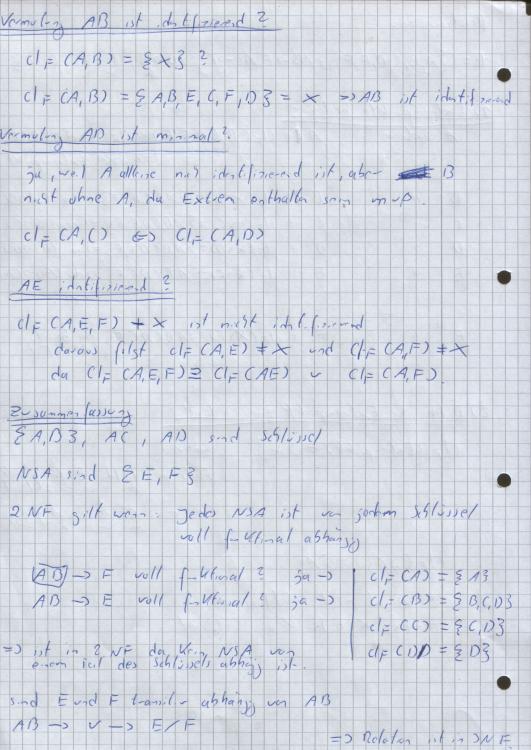 Vermutung AB ist identifizierend?
cl_F (A,B) = {X} ?
cl_F (A,B) = {A,B,E,C,F,D} = X => AB ist identifizierend
Vermutung AB ist minimal?
ja, weil A alleine nicht identifizierend ist, aber B
nicht ohne A, da Extrem enthalten sein muß.
cl_F (A,C) <=> cl_F (A,D)
AE identifizierend?
cl_F (A,E,F) ≠ X ist nicht identifizierend
daraus folgt cl_F (A,E) ≠ X und cl_F (A,F) ≠ X
da cl_F (A,E,F) ⊇ cl_F (AE) ∪ cl_F (A,F)
Zusammenfassung
{A,B}, AC, AD sind Schlüssel
NSA sind {E,F}
2NF gilt wenn: Jedes NSA ist von jedem Schlüssel
voll funktional abhängig
AB -> F voll funktional? ja ->
AB -> E voll funktional? ja ->
cl_F (A) = {A}
cl_F (B) = {B,C,D}
cl_F (C) = {C,D}
cl_F (D) = {D}
=> ist in 2NF da kein NSA von
einem Teil des Schlüssels abhäng ist.
sind E und F transitiv abhängig von AB
AB -> v -> E/F
=> Relation ist in 3NF